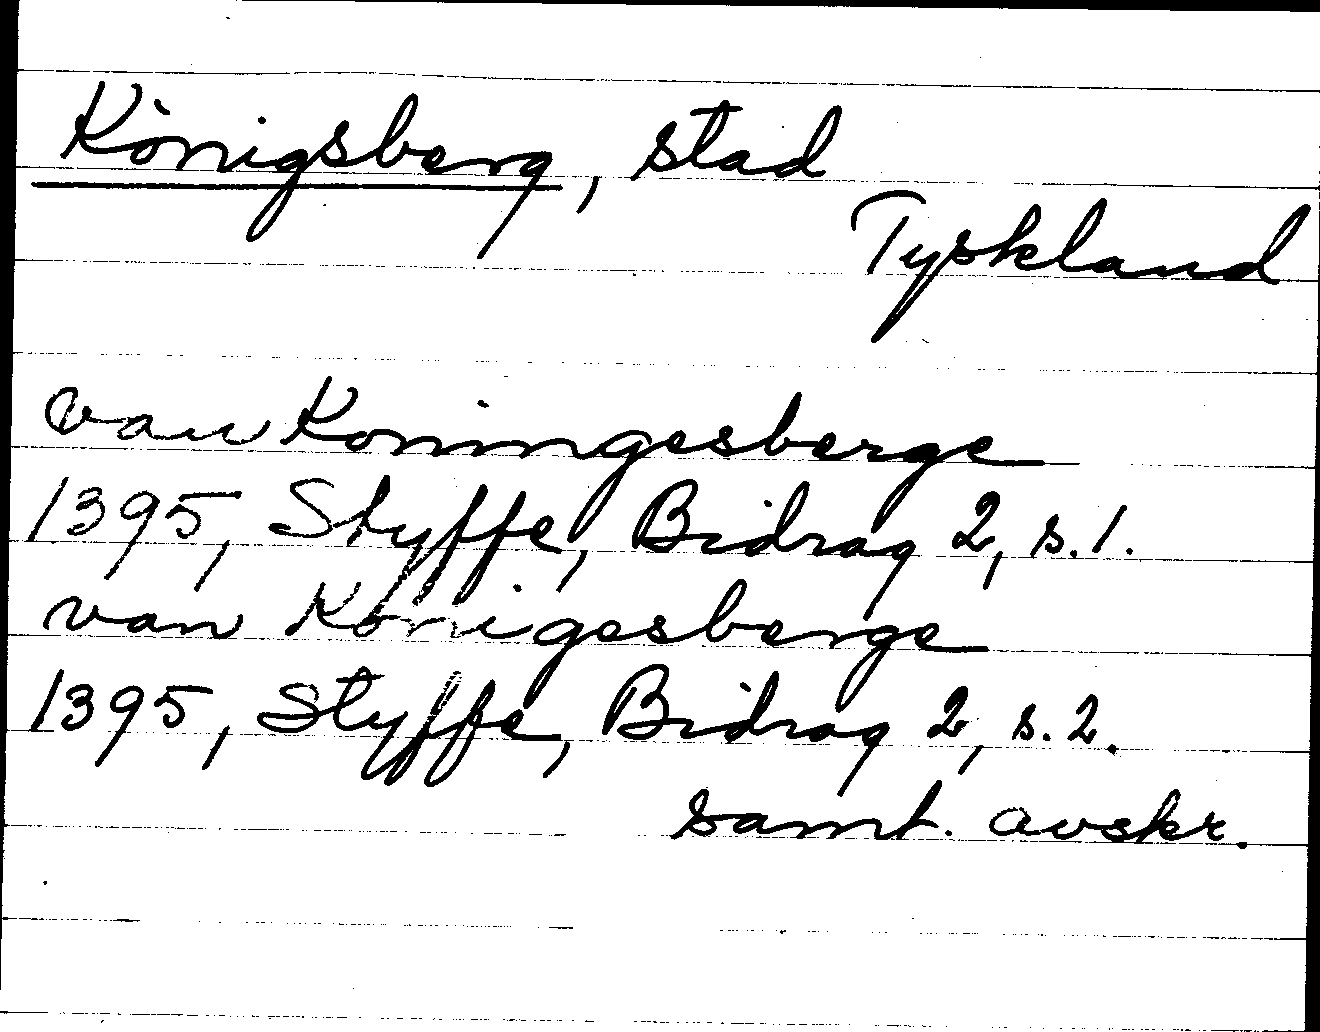 Königsberg, stad
Tyskland
van Koningesberge
1395, Styffe, Bidrag 2, s. 1.
van Konigesberge
1395, Styffe, Bidrag 2, s. 2.
samt. avskr.